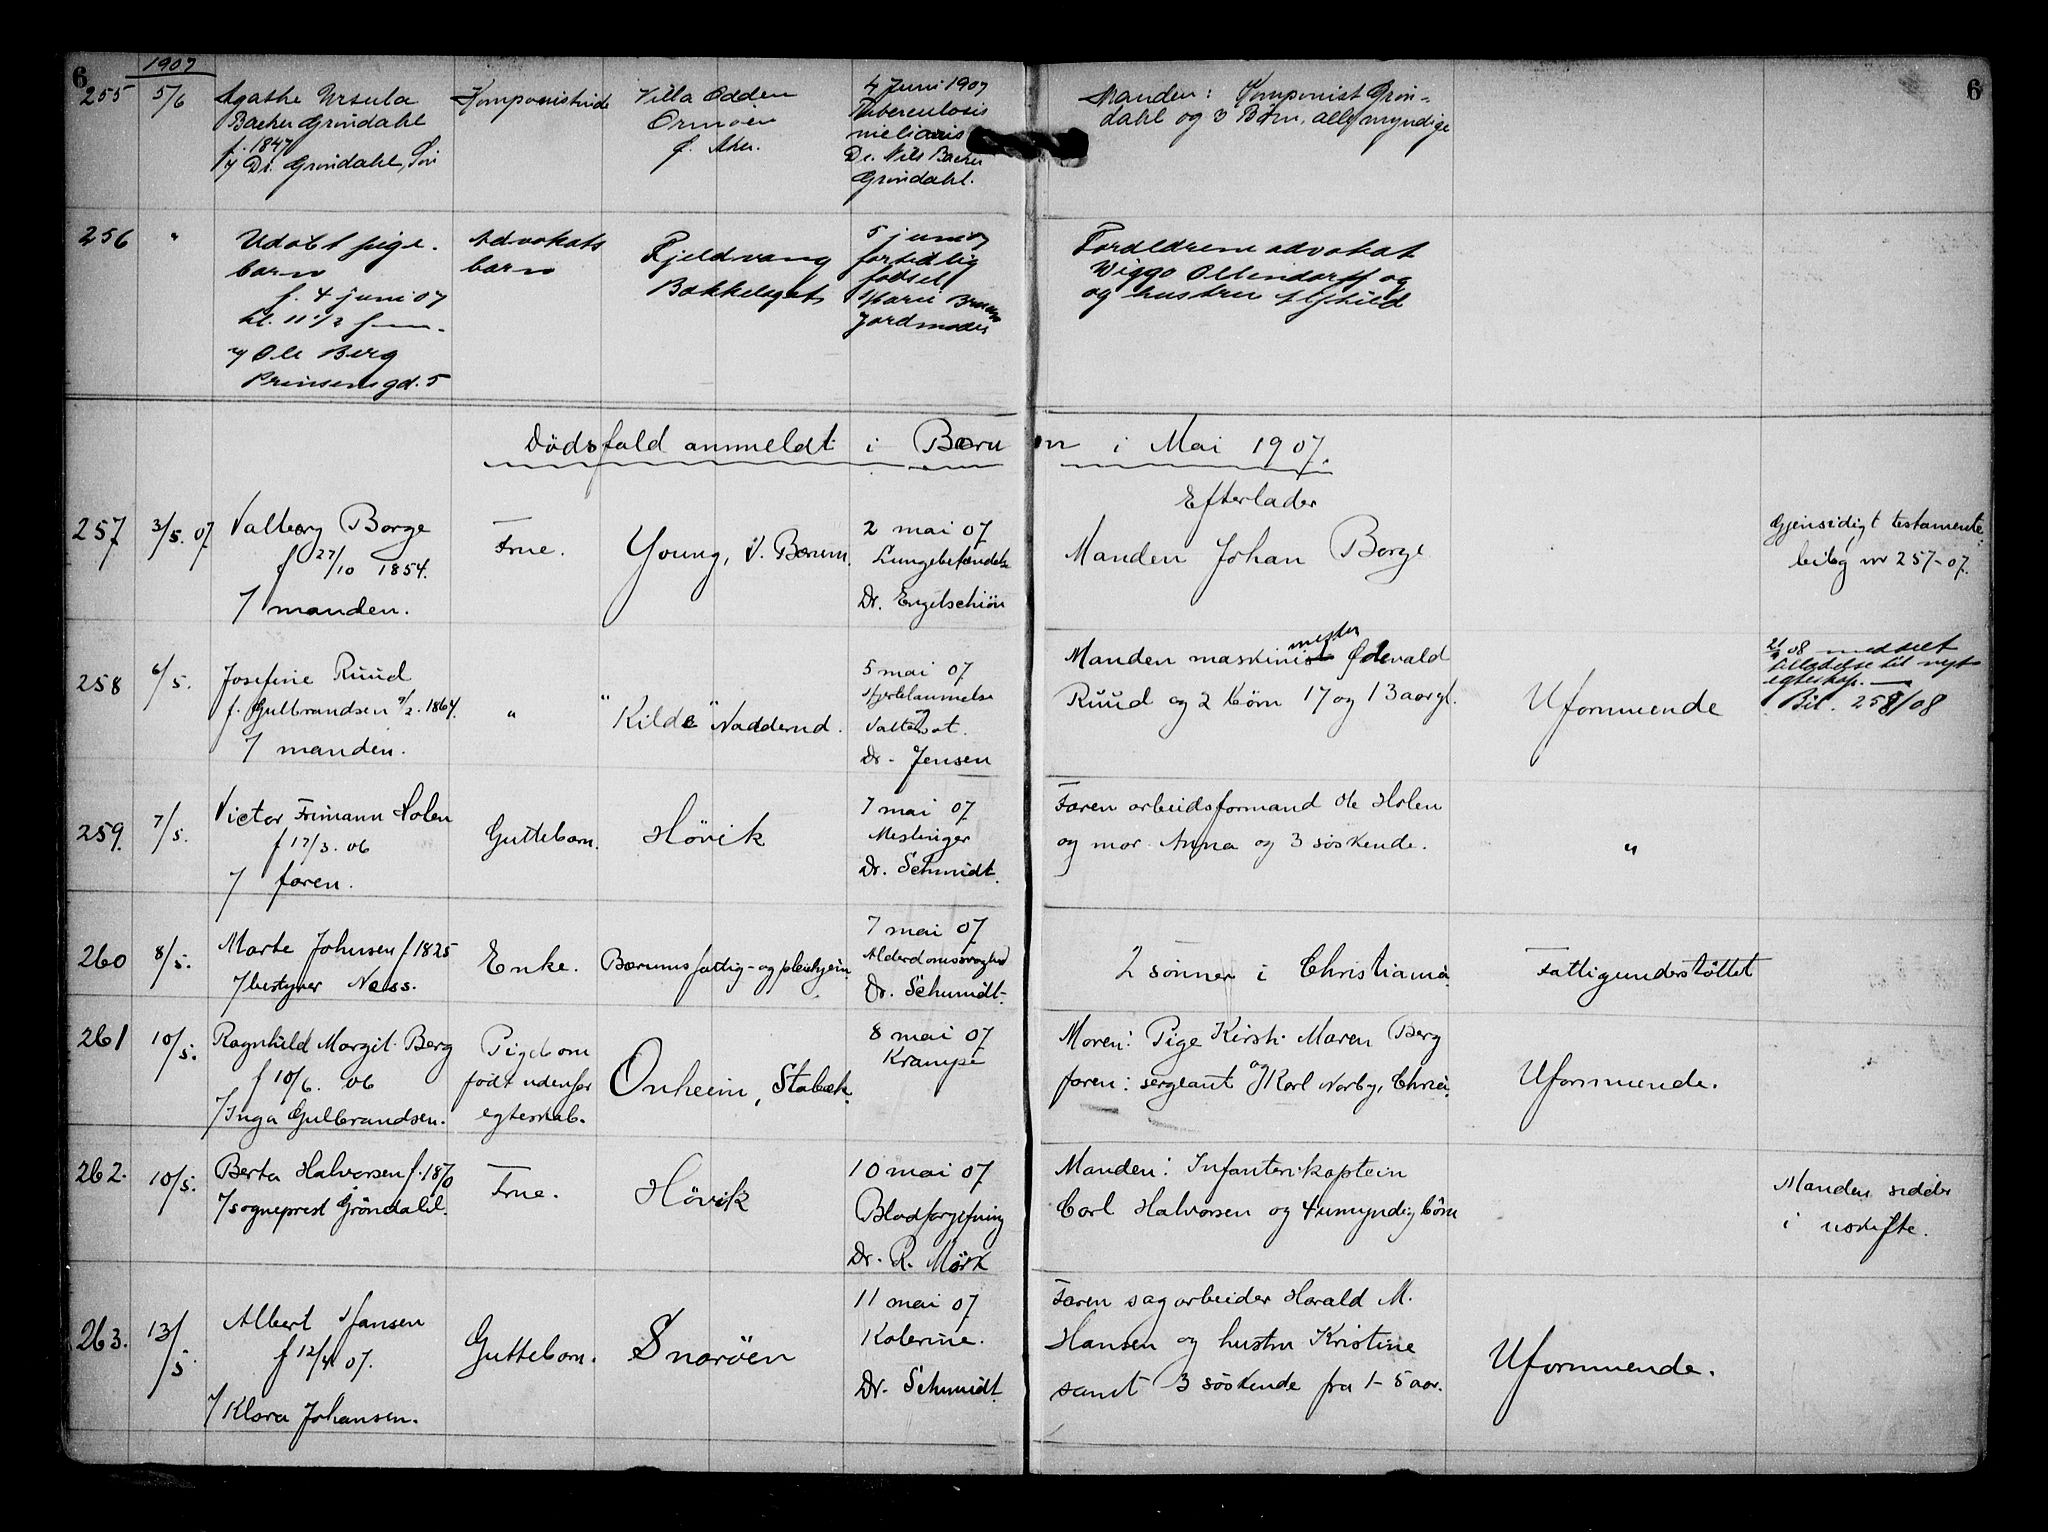 6
1907
6
255
5/6
Agathe Ursula
Backer Grøndahl
f. 1847
v/ Dr. Grøndahl, Søn
Komponistinde
Villa Odden
Ormøen
Ø. Aker.
4 Juni 1907
Tuberculosis
miliaris
Dr. Nils Backer
Grøndahl.
Manden: Komponist Grøn-
dahl og 3 Børn, alle myndige
256
"
Udøbt pige-
barn
f. 4 juni 07
kl. 11 1/2 fm.
v/ Ole Berg
Prinsensgd. 5
Advokats
barn
Fjeldvang
Bækkelaget
5 juni 07
fortidlig
fødsel
Marie Bruun
Jordmoder
Forældrene advokat
Wiggo Ollendorff og
og hustru Alfhild
Dødsfald anmeldt i Bærum i Mai 1907.
Efterlader
257
3/5. 07
Valborg Borge
f 27/10 1854.
v/ manden.
Frue.
Young, V. Bærum.
2 mai 07
Lungebetændelse
Dr. Engelschiøn
Manden Johan Borge
Gjensidigt testamente
beilag nr 257-07.
258
6/5.
Josefine Ruud
f. Gulbrandsen 9/2. 1864.
v/ manden.
"
"Kilde" Nadderud.
5 mai 07
Hjertelammelse
og
Vattersot.
Dr. Jensen
Manden maskinist mester Ødevald
Ruud og 2 børn 17 og 13 aar gl.
Uformuende
08 meddelt
tilladelse til nyt
egteskap.
Bil. 258/08
259.
7/5.
Victor Frimann Holen
f 17/3. 06
v/ faren.
Guttebarn.
Høvik
7 mai 07
Meslinger
Dr. Schmidt.
Faren arbeidsformand Ole Holen
og mor Anna og 3 søskende.
"
260
8/5.
Marte Johnsen f. 1825
v/ bestyrer Næss.
Enke.
Bærums fattig- og pleiehjem
7 mai 07
Alderdomssvaghed
Dr. Schmidt.
2 sønner i Christiania.
Fattigunderstøttet
261
10/5.
Ragnhild Margit Berg
f 10/6. 06
v/ Inga Gulbrandsen.
Pigebarn
født udenfor
egteskab.
Onheim, Stabæk.
8 mai 07
Krampe
Moren: Pige Kirsti Maren Berg
og
faren: sergeant Karl Norby, Chria.
Uformuende.
262.
10/5.
Berta Halvorsen f. 1870
v/ sogneprest Grøndahl.
Frue.
Høvik
10 mai 07
Blodforgiftning
Dr. R. Mørk
Manden: Infanterikaptein
Carl Halvorsen og 4 umyndig børn
Manden sidder
i uskifte.
263.
13/5.
Albert Hansen
f 12/4 07.
v/ Klara Johansen.
Guttebarn.
Snarøen
11 mai 07
Kolerine.
Dr. Schmidt.
Faren sagarbeider Harald M.
Hansen og hustru Kristine
samt 3 søskende fra 1-5 aar.
Uformuende.